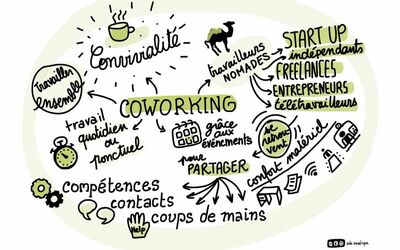 Convivialité
travailler
ensemble
COWORKING
travailleurs
NOMADES
START UP
indépendants
FREELANCES
ENTREPRENEURS
télétravailleurs
travail
quotidien
ou
ponctuel
grâce
aux
événements
se
retrou
vent !!
confort matériel
pour
PARTAGER
compétences
contacts
coups de mains
Help